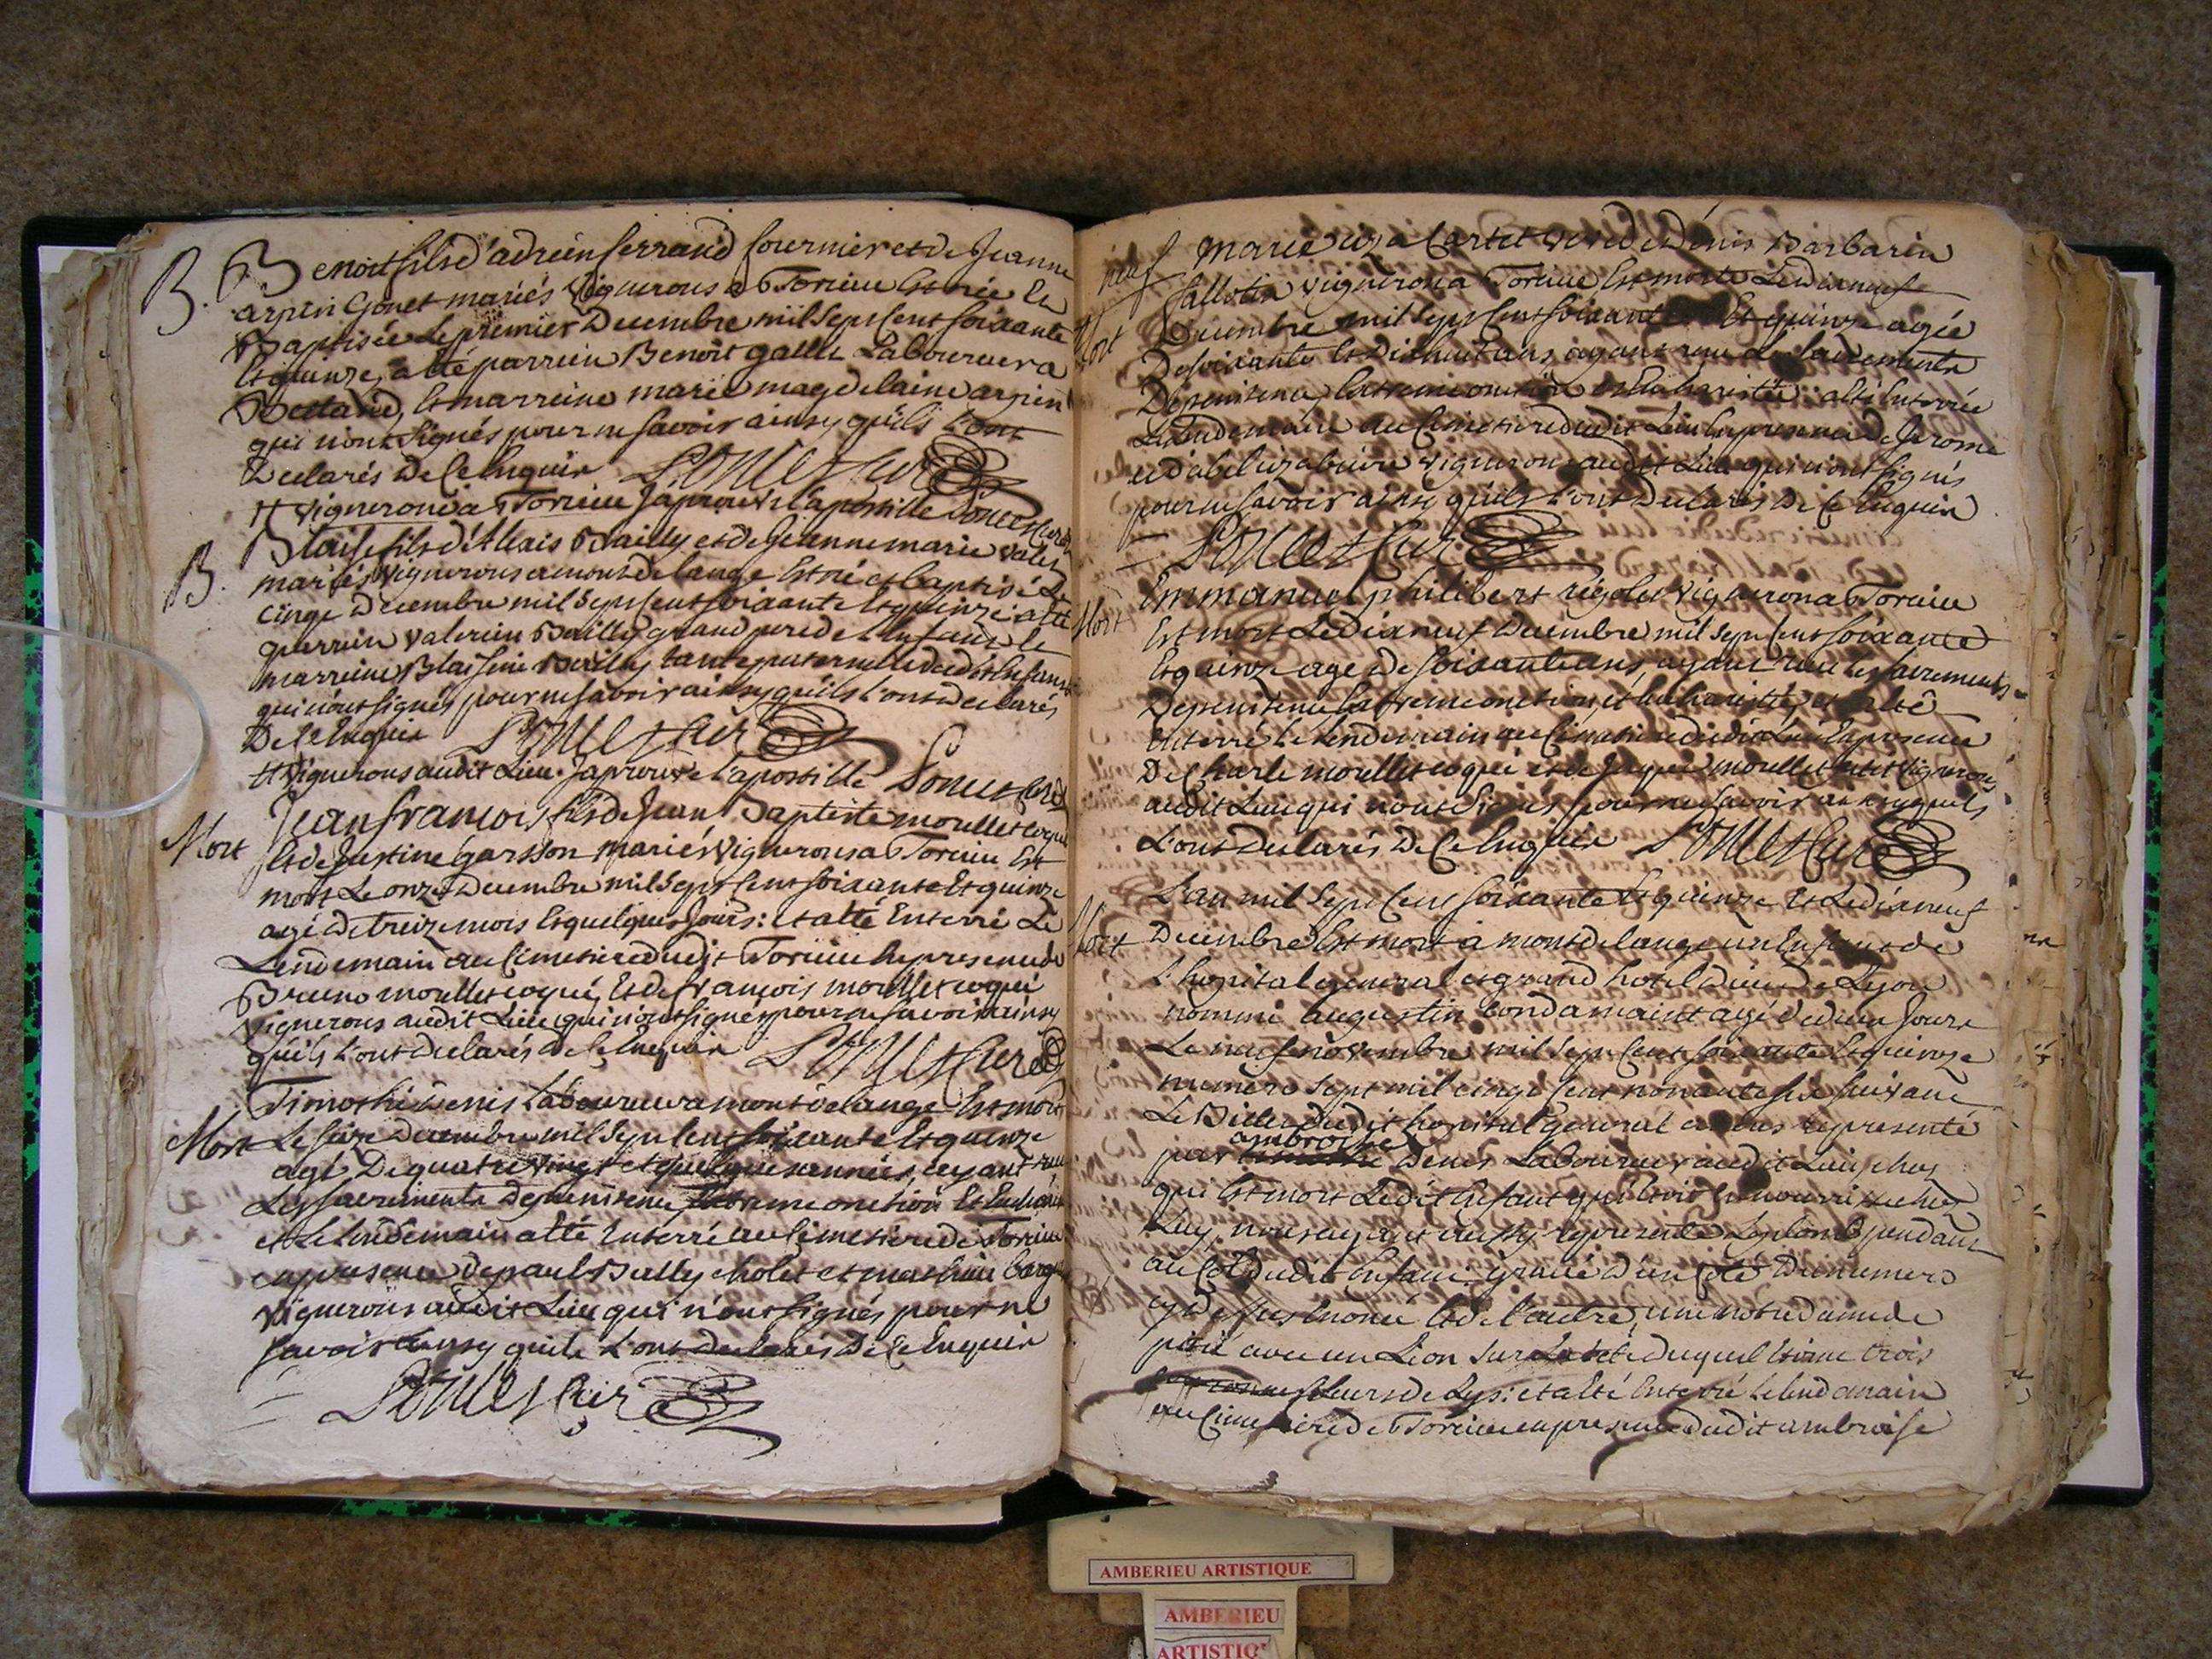 B. Benoit fils d'adrien ferrand fournier et de Jeanne
arpin Gonet mariés Vignerons a Torcieu Est née Et
Baptisée Le premier Decembre mil Sept Cent soixante
Et quinze, a Eté parrein Benoit Laboureur a
Bettand, Et marreine marie magdelaine arpin
qui n'ont Signés pour ne savoir ainsy qu'ils L'ont
Declarés De Ce Enquis
Vigneron a Torcieu J'aprouve l'apostille
B. Blaise fils d'Alexis Bailly et de Jeanne marie
mariés Vignerons a mont de lange Est né et baptisé Le
cinqe Decembre mil Sept Cent soixante Et quinze a eté
parrein Valerien Bailly grand pere de l'enfant le
marreine Blaisine Bailly tante paternelle dudit Enfant
qui n'ont signés pour ne savoir ainsy qu'ils L'ont declarés
De Ce Enquis
Vignerons audit Lieu. J'aprouve l'apostille
Mort Jean francois fils de Jean Baptiste morellet coqué
Et de Justine garsson mariés Vignerons a Torcieu Est
mort Le onze Decembre mil Sept Cent soixante Et quinze
agé De treize mois Et quelques Jours: et a Eté Enterré Le
Lendemain au Cimetiere dudit Torcieu En presence de
Bruno morellet coqué, Et de françois morellet coqué
Vignerons audit Lieu qui n'ont signés pour ne savoir ainsy
qu'ils L'ont declarés De Ce Enquis
Mort Timothé Denis Laboureur a mont de lange Est mort
Le seize Decembre mil Sept Cent soixante Et quinze
agé De quatre vingt et quelques années, ayant reçu
Les sacrements De penitence Extreme onction Et Euchari
et Le lendemain a Eté Enterré au Cimetiere de Torcieu
en presence De paul Bailly cholet et mathieu
Vignerons audit Lieu qui n'ont signés pour ne
savoir ainsy qu'ils L'ont declarés De Ce Enquis
Mort marie Cartet veuve de Denis Barbarin
Vigneron a Torcieu Est morte Le dixneuf
Decembre mil Sept Cent soixante Et quinze agée
De soixante Et Dixhuit ans ayant reçu Les sacrements
De penitence, Extreme onction et Eucharistie: a Eté Enterrée
Lendemain au Cimetiere dudit Lieu En presence de Jerome
et d'abel vignerons audit Lieu qui n'ont signés
pour ne savoir ainsi qu'ils L'ont Declarés De Ce Enquis
Mort Emmanuel philibert rigolet Vigneron a Torcieu
Est mort Le dixneuf Decembre mil Sept Cent soixante
Et quinze agé De soixante ans, ayant reçu Les sacrements
De penitence Extreme onction, et Eucharistie, et a Eté
Enterré Le lendemain au Cimetiere dudit Lieu En presence
De Charle morellet coqué et de morellet Vignerons
audit Lieu qui n'ont Signés pour ne savoir ainsy qu'ils
L'ont Declarés De Ce Enquis
Mort L'an mil Sept Cent soixante Et quinze Et Le dixneuf
Decembre Est mort a mont de lange un Enfant de
L'hopital general et grand hotel Dieu De Lyon
nommé augustin Condamaint agé d'un Jour
Le neuf novembre mil Sept Cent soixante Et quinze
numero sept mil cinq Cent nonante six suivant
Le Billet dudit hopital general a nous representé
par ambroise Denis Laboureur audit Lieu chez
qui Est mort Ledit Enfant qui Etoit En nourrisse chez
Luy, nous ayant aussy representé Le plomb pendant
au Col dudit Enfant gravé d'un Coté Du numero
cy dessus Enoncé Et de l'autre, une notre dame de
pitié avec un Lion sur La tete duquel Etoient trois
fleurs de Lys: et a Eté Enterré Le lendemain
au Cimetiere de Torcieu en presence dudit ambroise
AMBERIEU ARTISTIQUE
AMBERIEU